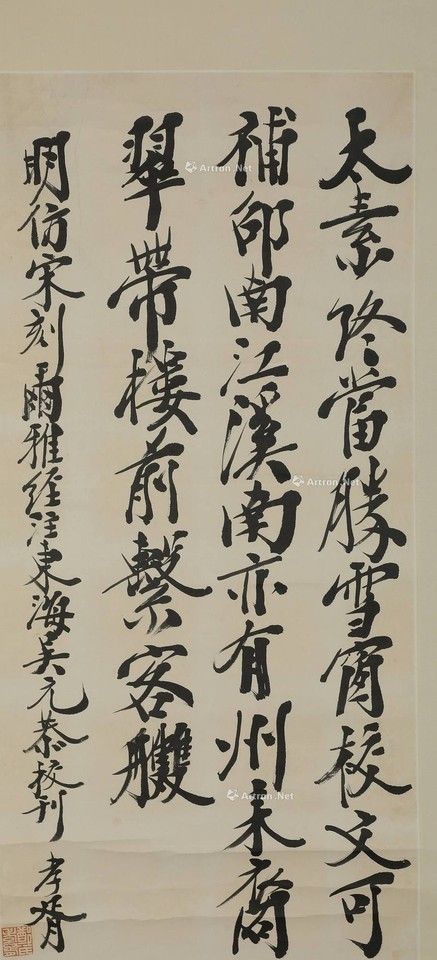 太素終當勝雪窗校文可
補邵南江溪南亦有州來裔
翠帶樓前繫客艭
明仿宋刻爾雅經注東海吳元恭校刊 孝胥
Artron.Net
Artron.Net
Artron.Net